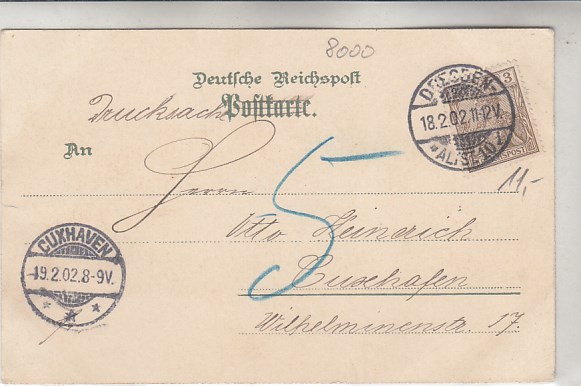 8000
Deutsche Reichspost
Drucksache Postkarte.
An
Herrn
Otto Heinerich
Cuxhafen
Wilhelminenstr. 17.
5
11,-
3
DRESDEN-
18.2.02.11-12V.
*ALTST.10z
CUXHAVEN
19.2.02.8-9V.
* * *